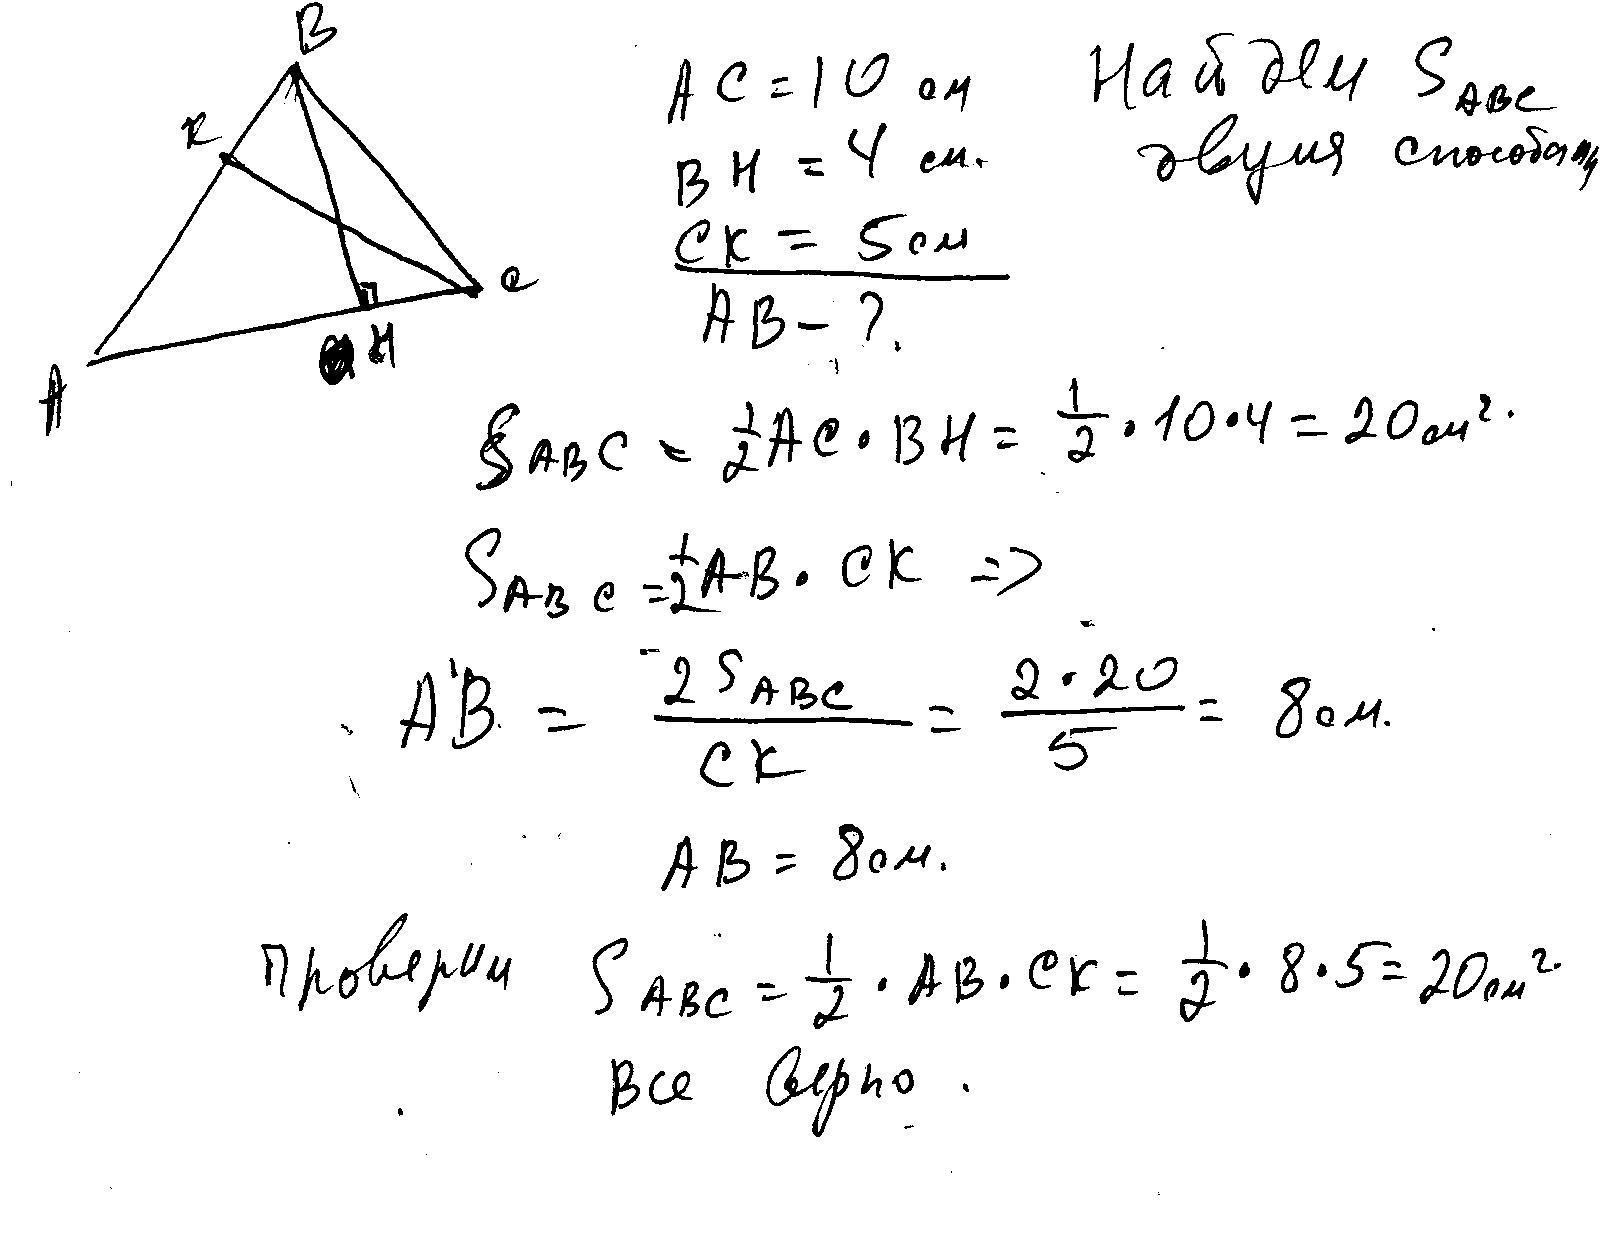 B
K
C
H
A
AC = 10 см
BH = 4 см.
CK = 5 см
AB - ?
Найдем S ABC
двумя способами
S ABC = 1/2 AC · BH = 1/2 · 10 · 4 = 20 см².
S ABC = 1/2 AB · CK =>
AB = 2 S ABC / CK = 2 · 20 / 5 = 8 см.
AB = 8 см.
Проверим S ABC = 1/2 · AB · CK = 1/2 · 8 · 5 = 20 см²
Все верно.